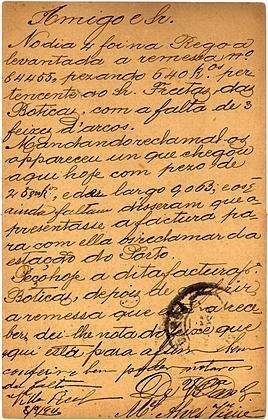 Amigo e Sr.
No dia 4 foi na Regoa
levantada a remessa nº
54455, pezando 640 kºs per
tencente ao Sr. Freitas, das
Boticas, com a falta de 3
feixes d'arcos.
Mandando reclamal-os
appareceu un que chegou
aqui hoje com pezo de
e de largo 0,063; e os
ainda faltam disseram que a
presentasse a factura pa
ra com ella os reclamar da
estação do Porto.
Peço hoje a dita factura pª
Boticas, depois de
a remessa que a rece
ber, dei-lhe nota do que que
aqui está para assim bem
conferir e bem poder notar os
de falta
Villa Real